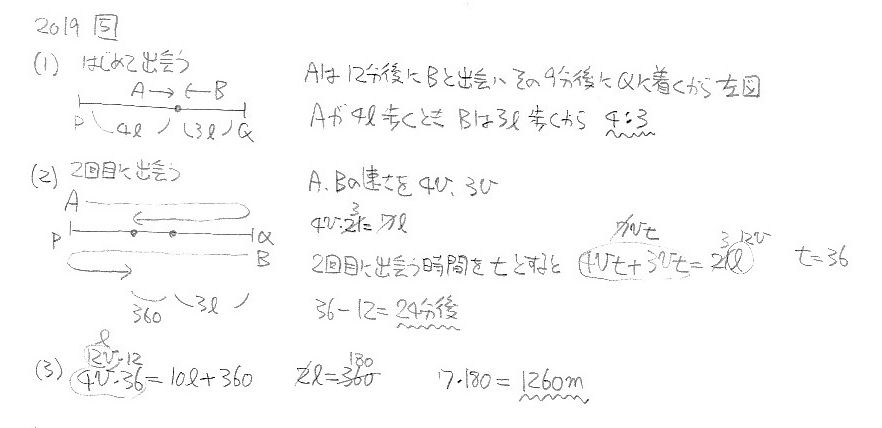 2019 5
(1) はじめて出会う
A→ ←B
P 4l 3l Q
Aは12分後にBと出会い その9分後にQに着くから左図
Aが4l歩くとき Bは3l歩くから 4:3
(2) 2回目に出会う
A
P Q
B
360 3l
A、Bの速さを4v、3v
3
4v・21=7l
7vt
2回目に出会う時間をtとすると 4vt+3vt=21l t=36
3 12v
36-12=24分後
l
12v・12
(3) 4v・36=10l+360
180
2l=360
7・180=1260m